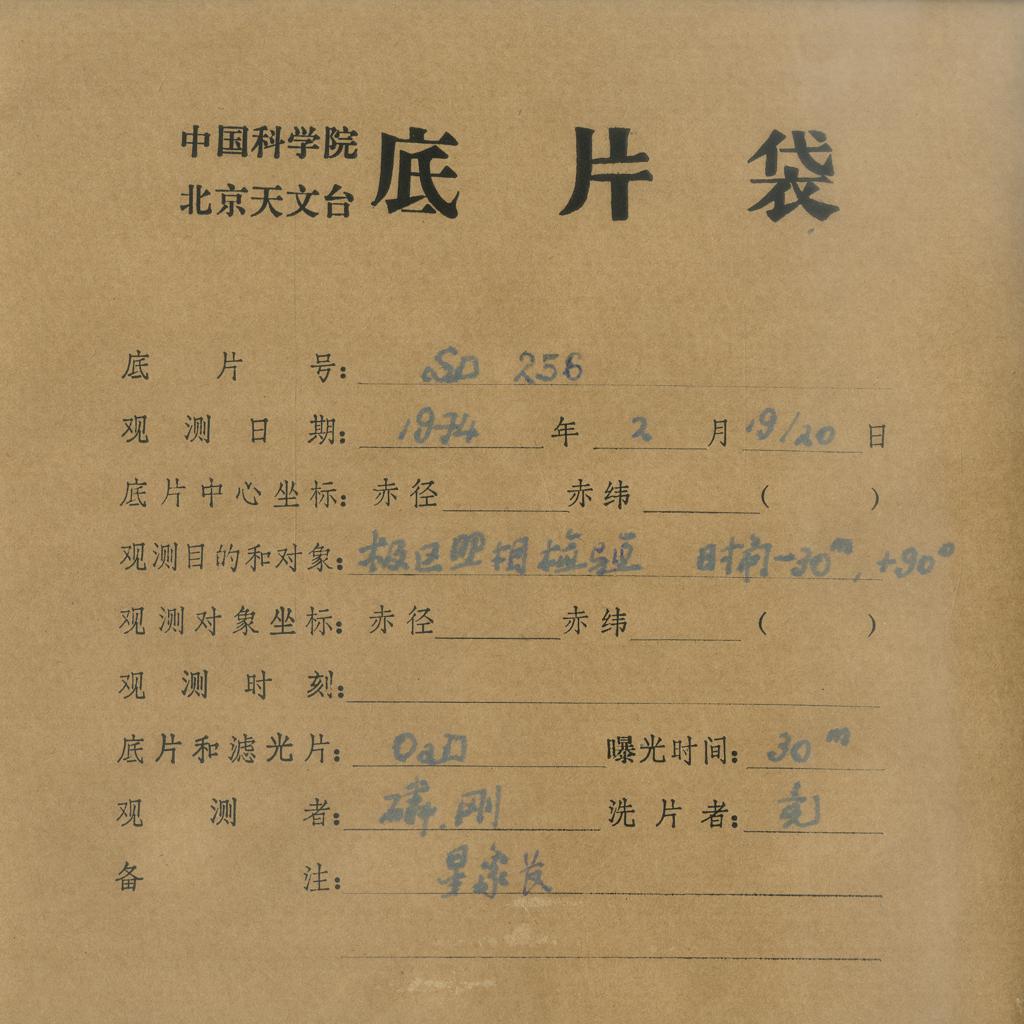 中国科学院
北京天文台
底片袋
底片号: SD 256
观测日期: 1974 年 2 月 19/20 日
底片中心坐标: 赤径 赤纬 ( )
观测目的和对象: 极区照相检验 时角-30m, +90°
观测对象坐标: 赤径 赤纬 ( )
观测时刻:
底片和滤光片: OaD 曝光时间: 30m
观测者: 刚 洗片者:
备注: 星象